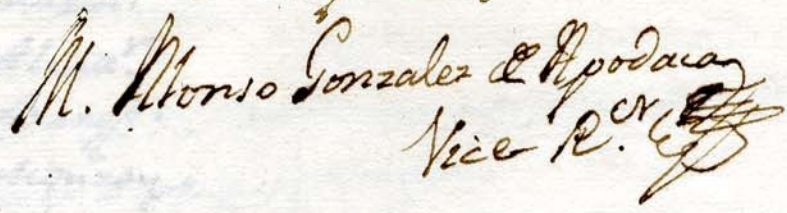 M. Alonso Gonzalez de Apodaca
Vice R.or